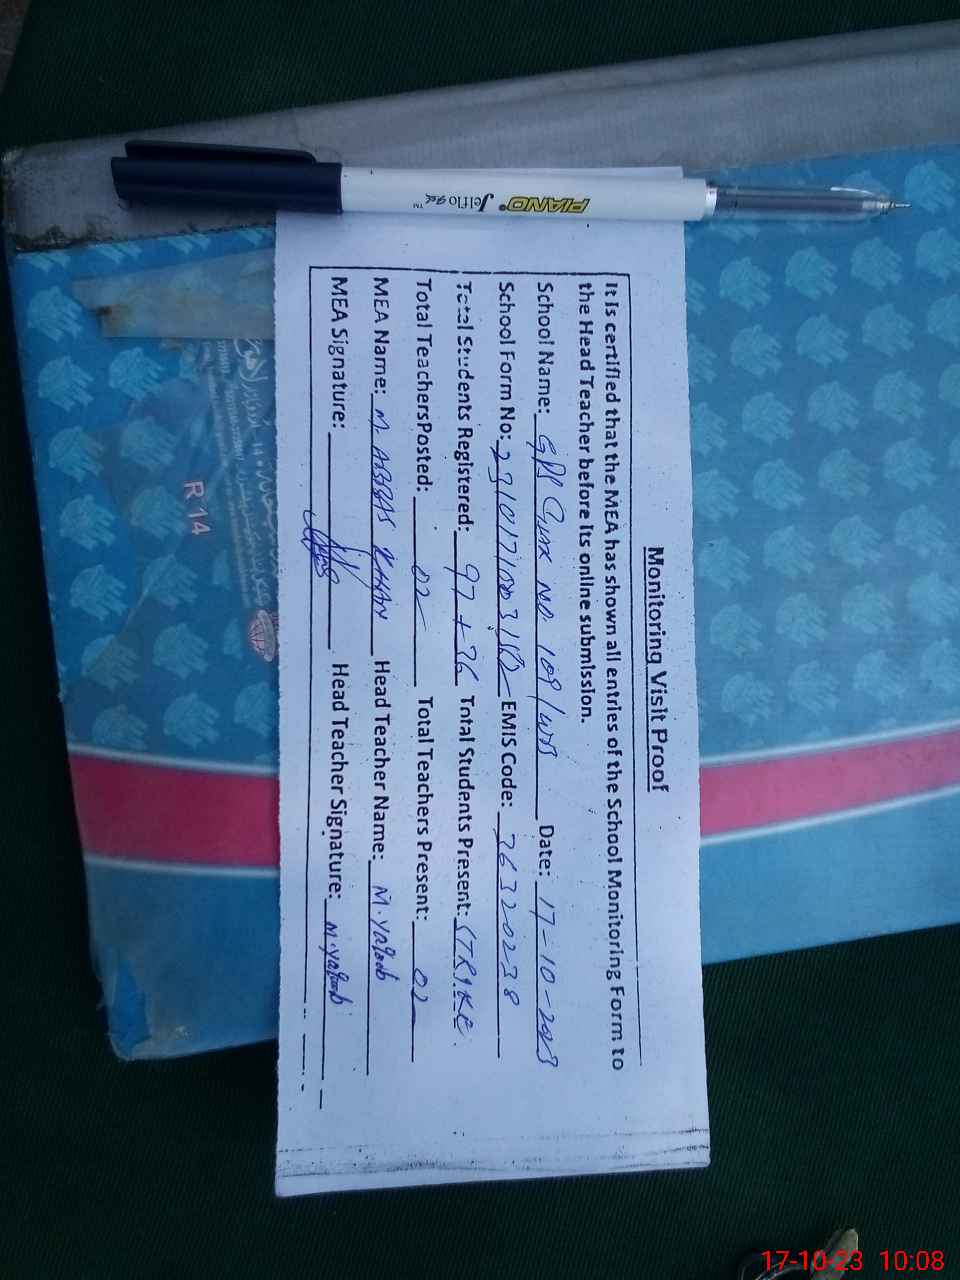 PIANO® Jelflo gel ™
Monitoring Visit Proof
It is certified that the MEA has shown all entries of the School Monitoring Form to
the Head Teacher before its online submission.
School Name: GPS Date: 17-10-2023
School Form No: EMIS Code: 36320238
Total Students Registered: 97 + 36 Total Students Present: STRIKE.
Total Teachers Posted: 02 Total Teachers Present: 02
MEA Name: M. ABBAS KHAN Head Teacher Name: M. Yaqoob
MEA Signature: Head Teacher Signature: M. Yaqoob
R 14
17-10-23 10:08